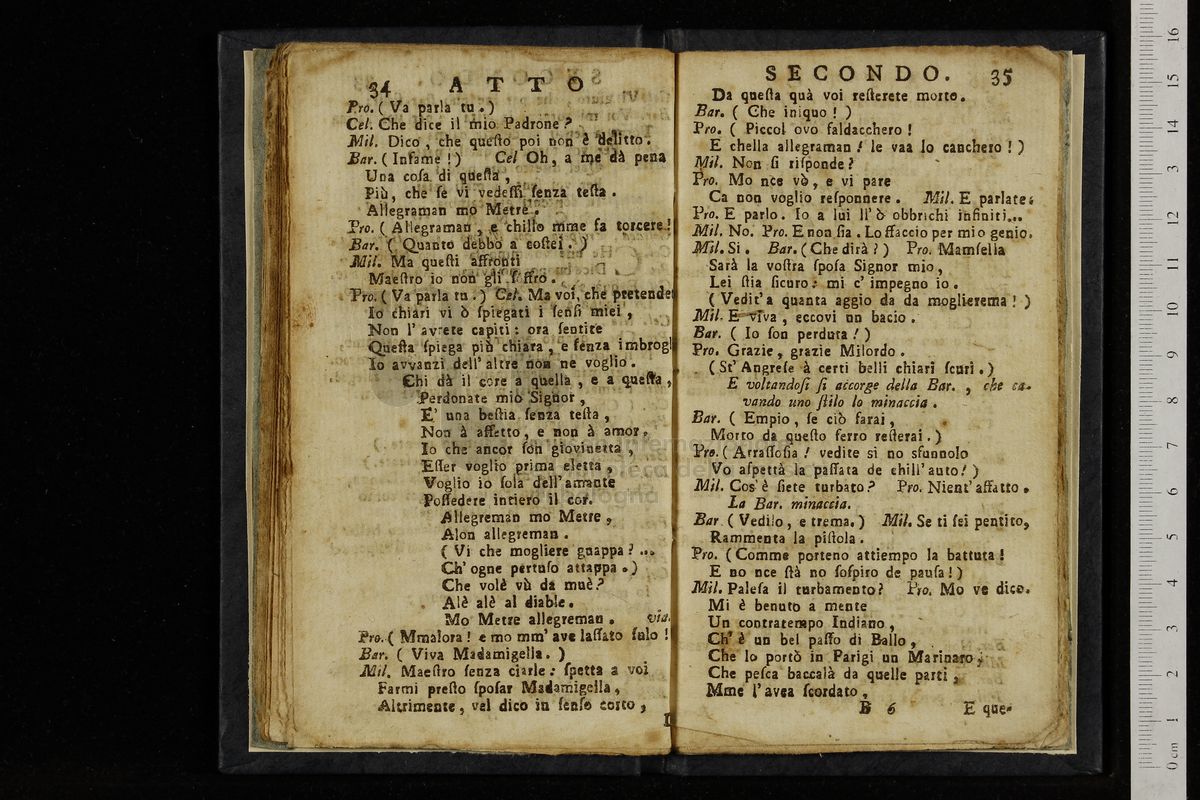 34 ATTO
Pro. ( Va parla tu . )
Cel. Che dice il mio Padrone ?
Mil. Dico , che queſto poi non è delitto .
Bar. ( Infame ! ) Cel Oh , a me dà pena
Una coſa di queſta ,
Più , che ſe vi vedeſſi ſenza teſta .
Allegraman mo Metre .
Pro. ( Allegraman , e chillo mme fa torcere !
Bar. ( Quanto debbo a coſtei . )
Mil. Ma queſti affronti
Maeſtro io non gli ſoffro .
Pro. ( Va parla tu . ) Cel. Ma voi, che pretende
Io chiari vi ò ſpiegati i ſenſi miei ,
Non l' avrete capiti : ora ſentite
Queſta ſpiega più chiara , e ſenza imbrogl
Io avvanzi dell' altre non ne voglio .
Chi dà il core a quella , e a queſta ,
Perdonate mio Signor ,
E' una beſtia ſenza teſta ,
Non à affetto , e non à amor .
Io che ancor ſon giovinetta ,
Eſſer voglio prima eletta ,
Voglio io ſola dell' amante
Poſſedere intiero il cor.
Allegreman mo Metre ,
Alon allegreman .
( Vi che mogliere guappa ? ...
Ch' ogne pertuſo attappa . )
Che volè vù da muè ?
Alè alè al diable .
Mo Metre allegreman . via.
Pro. ( Mmalora ! e mo mm' ave laſſato ſulo !
Bar. ( Viva Madamigella . )
Mil. Maeſtro ſenza ciarle : ſpetta a voi
Farmi preſto ſpoſar Madamigella ,
Altrimente , vel dico in ſenſo corto ,
SECONDO. 35
Da queſta quà voi reſterete morto .
Bar. ( Che iniquo ! )
Pro. ( Piccol ovo faldacchero !
E chella allegraman ! le vaa lo canchero ! )
Mil. Non ſi riſponde ?
Pro. Mo nce vò , e vi pare
Ca non voglio reſponnere . Mil. E parlate .
Pro. E parlo . Io a lui ll' ò obbrichi infiniti...
Mil. No. Pro. E non ſia . Lo ffaccio per mio genio .
Mil. Si . Bar. ( Che dirà ? ) Pro. Mamſella
Sarà la voſtra ſpoſa Signor mio ,
Lei ſtia ſicuro : mi c' impegno io .
( Vedit' a quanta aggio da da moglierema ! )
Mil. E viva , eccovi un bacio .
Bar. ( Io ſon perduta ! )
Pro. Grazie , grazie Milordo .
( St' Angreſe à certi belli chiari ſcuri . )
E voltandoſi ſi accorge della Bar. , che ca-
vando uno ſtilo lo minaccia .
Bar. ( Empio , ſe ciò farai ,
Morto da queſto ferro reſterai . )
Pro. ( Arraſſoſia ! vedite si no sfunnolo
Vo aſpettà la paſſata de chill' auto ! )
Mil. Cos' è ſiete turbato ? Pro. Nient' affatto .
La Bar. minaccia.
Bar ( Vedilo , e trema. ) Mil. Se ti ſei pentito,
Rammenta la piſtola .
Pro. ( Comme porteno attiempo la battuta !
E no nce ſtà no ſoſpiro de pauſa ! )
Mil. Paleſa il turbamento ? Pro. Mo ve dico.
Mi è benuto a mente
Un contratempo Indiano ,
Ch' è un bel paſſo di Ballo ,
Che lo portò in Parigi un Marinaro ,
Che peſca baccalà da quelle parti ,
Mme l' avea ſcordato ,
B 6 E que-